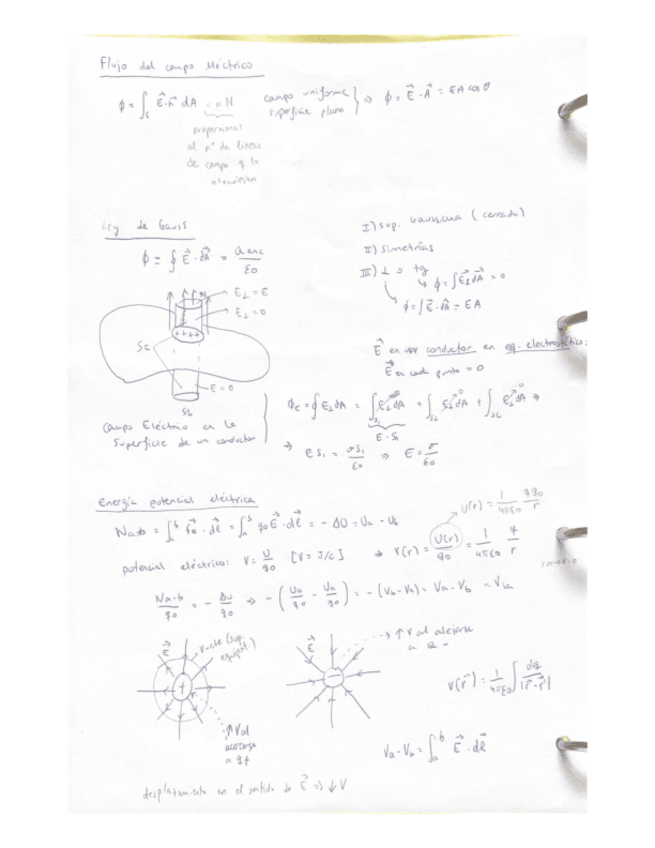 Flujo del campo eléctrico
ϕ = ∫s E⃗·n⃗ dA = α N
campo uniforme
superficie plana } ⇒ ϕ = E⃗·A⃗ = EA cos θ
proporcional
al nº de líneas
de campo q la
atraviesan
Ley de Gauss
ϕ = ∮ E⃗·dA⃗ = Q enc / ε0
I) sup. Gaussiana (cerrada)
II) simetrías
III) ⊥ o tg
ϕ = ∫E⊥dA = 0
ϕ = ∫E⃗·dA⃗ = EA
E⊥ = E
E⊥ = 0
++++
Sc
E = 0
S2
E⃗ en un conductor en eq. electrostático:
E⃗ en cada punto = 0
Campo Eléctrico en la
superficie de un conductor
ϕE = ∮ E⊥dA = ∫S1 E⊥dA + ∫S2 E⊥dA + ∫SC E⊥dA ⇒
E·S1
⇒ E S1 = σS1/ε0 ⇒ E = σ/ε0
Energía potencial eléctrica
U(r) = 1/4πε0 qq0/r
Wa→b = ∫a^b F⃗e·dl⃗ = ∫a^b q0E⃗·dl⃗ = -ΔU = Ua - Ub
potencial eléctrico: V = U/q0 [V = J/C] ⇒ V(r) = U(r)/q0 = 1/4πε0 q/r
Wa-b/q0 = - ΔU/q0 ⇒ -(Ub/q0 - Ua/q0) = -(Vb-Va) = Va-Vb = Vba
E⃗
V=cte (sup.
equipot.)
+
↑V al
acercarse
a q+
E⃗
−
↑V al alejarse
a Q -
V(r⃗) = 1/4πε0 ∫ dq/|r⃗-r⃗'|
Va-Vb = ∫a^b E⃗·dl⃗
desplazamiento en el sentido de E⃗ ⇒ ↓V